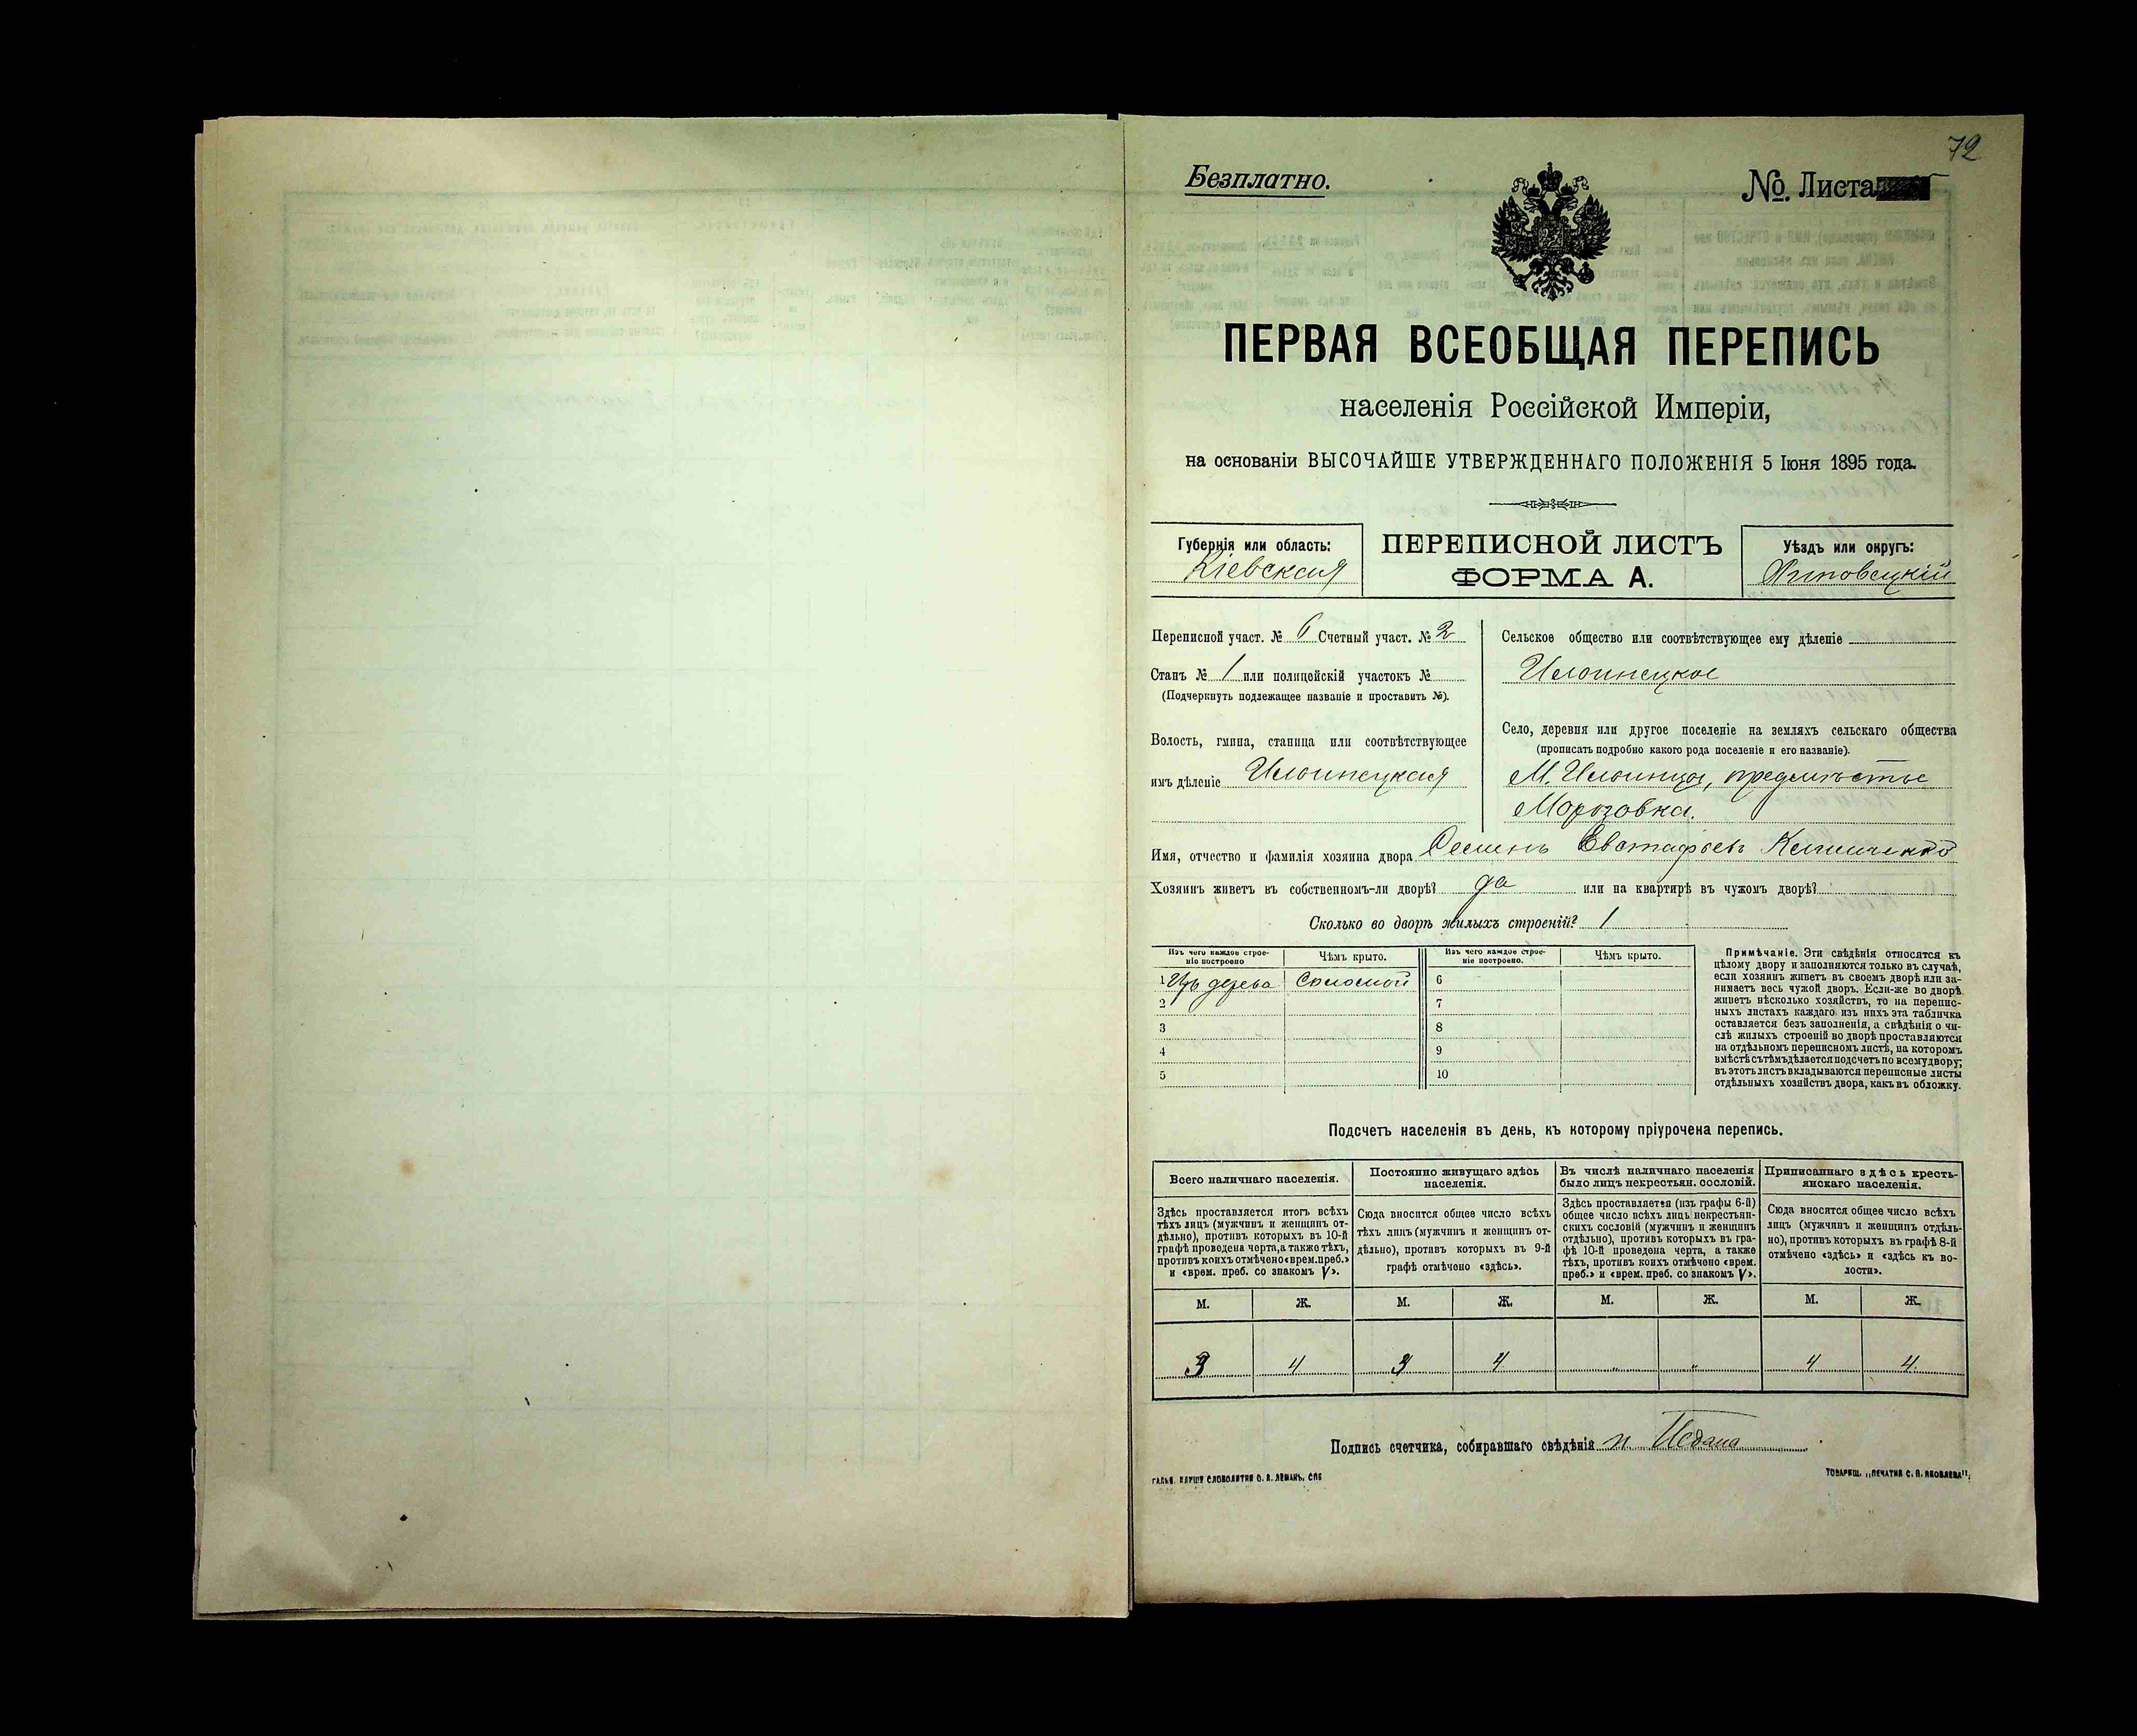 72
Безплатно.
№ Листа
ПЕРВАЯ ВСЕОБЩАЯ ПЕРЕПИСЬ
населенія Россійской Имперіи,
на основаніи ВЫСОЧАЙШЕ УТВЕРЖДЕННАГО ПОЛОЖЕНІЯ 5 Іюня 1895 года.
Губернія или область:
Кіевская
ПЕРЕПИСНОЙ ЛИСТЪ
ФОРМА А.
Уѣздъ или округъ:
Липовецкій
Переписной участ. № 6 Счетный участ. № 2
Станъ № 1 или полицейскій участокъ №
(Подчеркнуть подлежащее названіе и проставить №).
Волость, гмина, станица или соотвѣтствующее
имъ дѣленіе Ильинецкая
Сельское общество или соотвѣтствующее ему дѣленіе
Ильинецкое
Село, деревня или другое поселеніе на земляхъ сельскаго общества
(прописать подробно какого рода поселеніе и его названіе).
М. Ильинцы, предмѣстье
Морозовка.
Имя, отчество и фамилія хозяина двора Семенъ Евстафьевъ
Хозяинъ живетъ въ собственномъ-ли дворѣ? да или на квартирѣ въ чужомъ дворѣ?
Сколько во дворѣ жилыхъ строеній? 1
Изъ чего каждое строе-
ніе построено
Чѣмъ крыто.
Изъ чего каждое строе-
ніе построено.
Чѣмъ крыто.
1 Изъ дерева Соломой 6
2 7
3 8
4 9
5 10
Примѣчаніе. Эти свѣдѣнія относятся къ
цѣлому двору и заполняются только въ случаѣ,
если хозяинъ живетъ въ своемъ дворѣ или за-
нимаетъ весь чужой дворъ. Если-же во дворѣ
живетъ нѣсколько хозяйствъ, то на перепис-
ныхъ листахъ каждаго изъ нихъ эта табличка
оставляется безъ заполненія, а свѣдѣнія о чи-
слѣ жилыхъ строеній во дворѣ проставляются
на отдѣльномъ переписномъ листѣ, на которомъ
вмѣстѣ съ тѣмъ дѣлается подсчетъ по всему двору;
въ этотъ листъ вкладываются переписные листы
отдѣльныхъ хозяйствъ двора, какъ въ обложку.
Подсчетъ населенія въ день, къ которому пріурочена перепись.
Всего наличнаго населенія.
Постоянно живущаго здѣсь
населенія.
Въ числѣ наличнаго населенія
было лицъ некрестьян. сословій.
Приписаннаго здѣсь кресть-
янскаго населенія.
Здѣсь проставляется итогъ всѣхъ
тѣхъ лицъ (мужчинъ и женщинъ от-
дѣльно), противъ которыхъ въ 10-й
графѣ проведена черта, а также тѣхъ,
противъ коихъ отмѣчено «врем. преб.»
и «врем. преб. со знакомъ V».
Сюда вносится общее число всѣхъ
тѣхъ лицъ (мужчинъ и женщинъ от-
дѣльно), противъ которыхъ въ 9-й
графѣ отмѣчено «здѣсь».
Здѣсь проставляется (изъ графы 6-й)
общее число всѣхъ лицъ некрестьян-
скихъ сословій (мужчинъ и женщинъ
отдѣльно), противъ которыхъ въ гра-
фѣ 10-й проведена черта, а также
тѣхъ, противъ коихъ отмѣчено «врем.
преб.» и «врем. преб. со знакомъ V».
Сюда вносится общее число всѣхъ
лицъ (мужчинъ и женщинъ отдѣль-
но), противъ которыхъ въ графѣ 8-й
отмѣчено «здѣсь» и «здѣсь къ во-
лости».
М. Ж. М. Ж. М. Ж. М. Ж.
3 4 3 4 „ „ 4 4
Подпись счетчика, собиравшаго свѣдѣнія
ГАЛЬВ. КЛИШЕ СЛОВОЛИТНИ О. И. ЛЕМАНЪ, СПБ
ТОВАРИЩ. „ПЕЧАТНЯ С. П. ЯКОВЛЕВА".